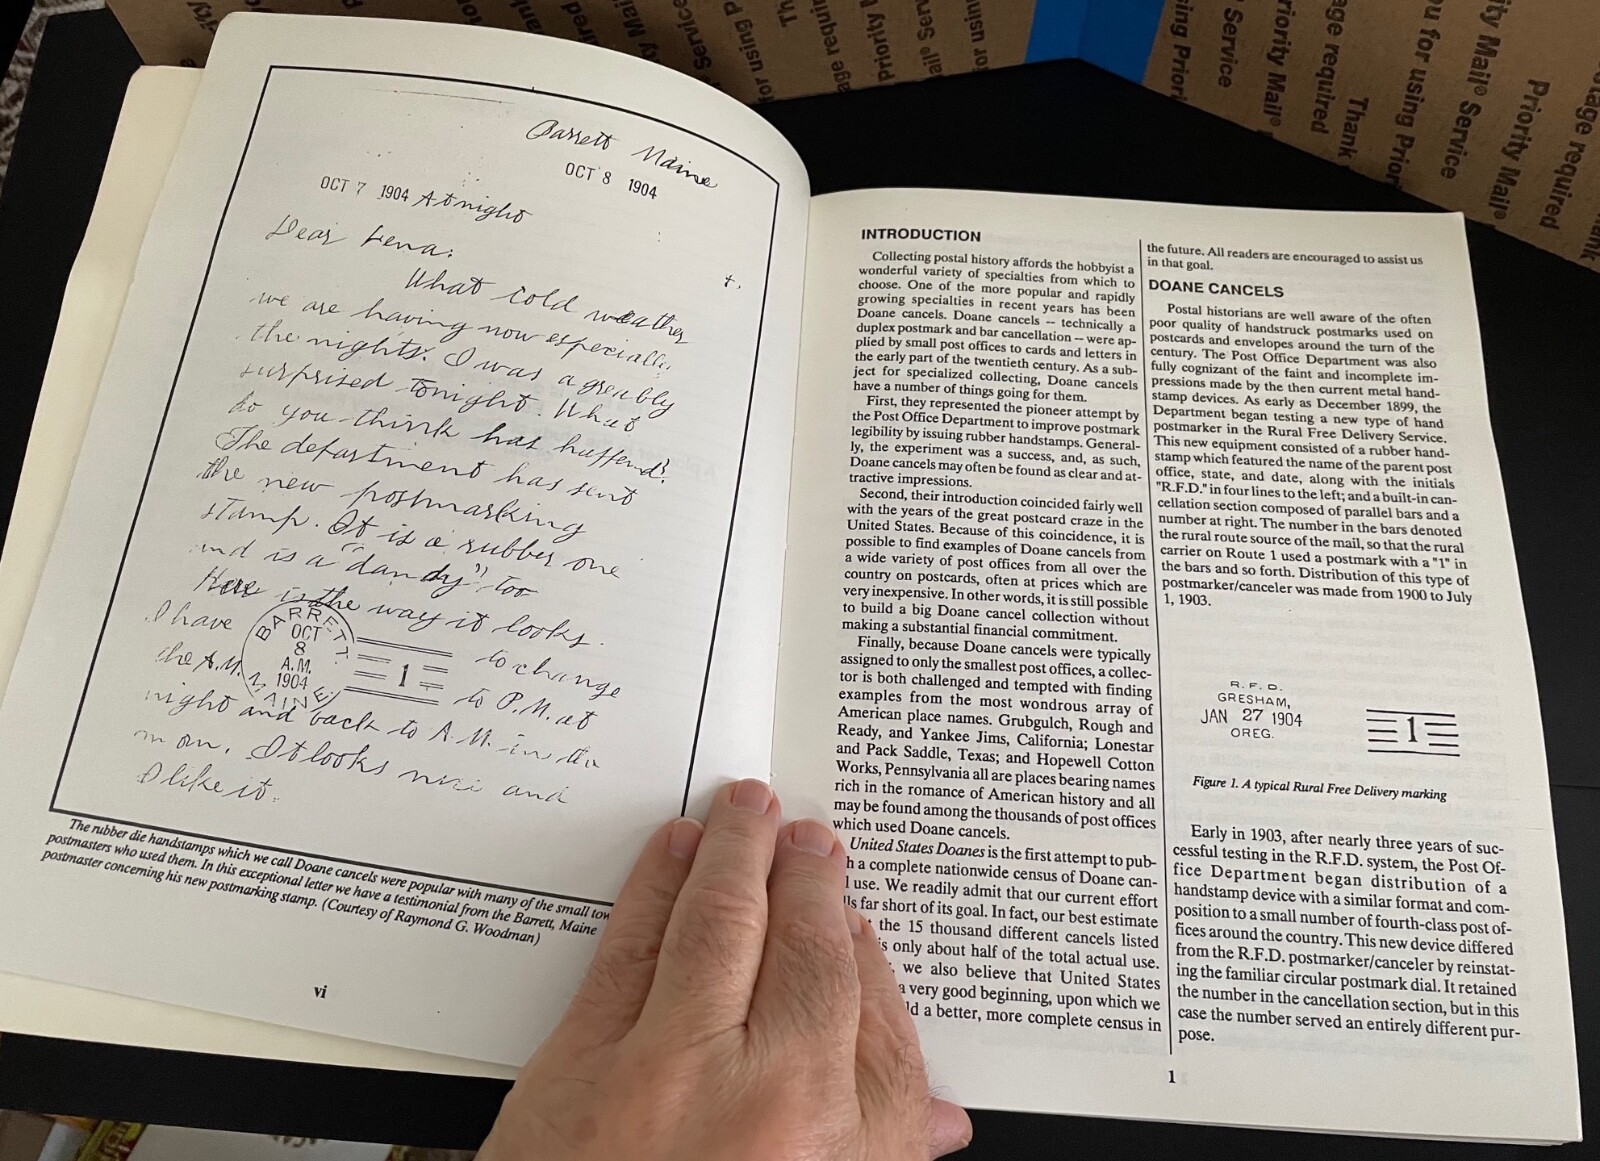 Barrett Maine
OCT 8 1904
OCT 7 1904 At night
Dear Lena:
What cold weather
we are having now especially
the nights. I was agreably
surprised tonight. What
do you think has haffend?
The department has sent
the new postmarking
stamp. It is a rubber one
and is a "dandy" too
Here is the way it looks.
I have to change
the A.M. to P.M. at
night and back to A.M. in the
morn. It looks nice and
I like it.
BARRETT.
OCT
8
A.M.
1904
MAINE.
1
The rubber die handstamps which we call Doane cancels were popular with many of the small tow
postmasters who used them. In this exceptional letter we have a testimonial from the Barrett, Maine
postmaster concerning his new postmarking stamp. (Courtesy of Raymond G. Woodman)
vi
INTRODUCTION
Collecting postal history affords the hobbyist a
wonderful variety of specialties from which to
choose. One of the more popular and rapidly
growing specialties in recent years has been
Doane cancels. Doane cancels -- technically a
duplex postmark and bar cancellation -- were ap-
plied by small post offices to cards and letters in
the early part of the twentieth century. As a sub-
ject for specialized collecting, Doane cancels
have a number of things going for them.
First, they represented the pioneer attempt by
the Post Office Department to improve postmark
legibility by issuing rubber handstamps. General-
ly, the experiment was a success, and, as such,
Doane cancels may often be found as clear and at-
tractive impressions.
Second, their introduction coincided fairly well
with the years of the great postcard craze in the
United States. Because of this coincidence, it is
possible to find examples of Doane cancels from
a wide variety of post offices from all over the
country on postcards, often at prices which are
very inexpensive. In other words, it is still possible
to build a big Doane cancel collection without
making a substantial financial commitment.
Finally, because Doane cancels were typically
assigned to only the smallest post offices, a collec-
tor is both challenged and tempted with finding
examples from the most wondrous array of
American place names. Grubgulch, Rough and
Ready, and Yankee Jims, California; Lonestar
and Pack Saddle, Texas; and Hopewell Cotton
Works, Pennsylvania all are places bearing names
rich in the romance of American history and all
may be found among the thousands of post offices
which used Doane cancels.
United States Doanes is the first attempt to pub-
h a complete nationwide census of Doane can-
l use. We readily admit that our current effort
lls far short of its goal. In fact, our best estimate
t the 15 thousand different cancels listed
is only about half of the total actual use.
, we also believe that United States
a very good beginning, upon which we
ld a better, more complete census in
the future. All readers are encouraged to assist us
in that goal.
DOANE CANCELS
Postal historians are well aware of the often
poor quality of handstruck postmarks used on
postcards and envelopes around the turn of the
century. The Post Office Department was also
fully cognizant of the faint and incomplete im-
pressions made by the then current metal hand-
stamp devices. As early as December 1899, the
Department began testing a new type of hand
postmarker in the Rural Free Delivery Service.
This new equipment consisted of a rubber hand-
stamp which featured the name of the parent post
office, state, and date, along with the initials
"R.F.D." in four lines to the left; and a built-in can-
cellation section composed of parallel bars and a
number at right. The number in the bars denoted
the rural route source of the mail, so that the rural
carrier on Route 1 used a postmark with a "1" in
the bars and so forth. Distribution of this type of
postmarker/canceler was made from 1900 to July
1, 1903.
R. F. D.
GRESHAM,
JAN 27 1904
OREG.
1
Figure 1. A typical Rural Free Delivery marking
Early in 1903, after nearly three years of suc-
cessful testing in the R.F.D. system, the Post Of-
fice Department began distribution of a
handstamp device with a similar format and com-
position to a small number of fourth-class post of-
fices around the country. This new device differed
from the R.F.D. postmarker/canceler by reinstat-
ing the familiar circular postmark dial. It retained
the number in the cancellation section, but in this
case the number served an entirely different pur-
pose.
1
Priority Mail
Service
for using
Priority Mail® Service
Thank
age required